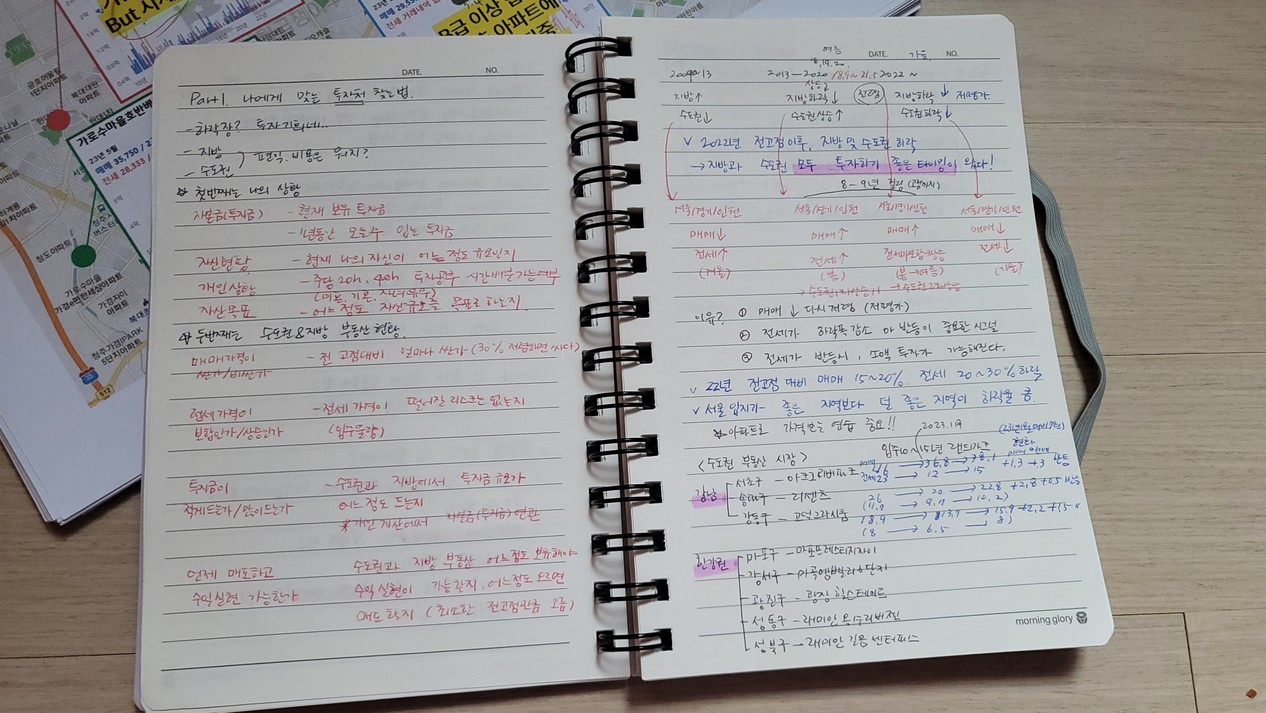 But 시
B급 이상
아파트에
금호어울림
1단지아파트
북대대원
아파트
가로수마을호반베
23년 5월
매매 35,750 / 22
전세 26,333 /
청도아파트
가로수마을
가경e편한세상아파트
가경자이
아파트
청주가경JPARK
5단지아파트
512
DATE. NO.
Part1. 나에게 맞는 투자처 찾는법.
- 하락장? 투자기회네..
- 지방
- 수도권 ) 편익, 비용은 뭐지?
첫번째는 나의 상황
자본금(투자금) - 현재 보유 투자금
- 1년동안 모을수 있는 투자금
자산현황 - 현재 나의 자산이 어느정도 규모인지
개인상황 - 주당 20h, 40h 투자공부 시간배분가능여부
(미혼, 기혼, 자녀유무)
자산목표 - 어느정도 자산규모를 목표로 하는지.
두번째는 수도권&지방 부동산 현황.
매매가격이 - 전 고점대비 얼마나 싼가 (30% 저렴하면 싸다)
싼가/비싼가
전세가격이 - 전세가격이 떨어질 리스크는 없는지
보합인가/상승인가 (입주물량)
투자금이 - 수도권과 지방에서 투자금 규모가
적게드는가/많이드는가 어느정도 드는지
* 개인 자산에서 자본금(투자금) 연관
언제 매도하고 수도권과 지방 부동산 어느정도 보유해야
수익실현 가능한가 수익실현이 가능한지, 어느정도 오르면
매도할지 (최소한 전고점만큼 오름)
DATE. NO.
여름 가을
2009~13 2013-2020 2022~
지방↑ 지방하락↓ 지방하락↓ 저평가
수도권↓ 수도권상승↑ 수도권하락↓
v 2022년 전고점이후, 지방 및 수도권 하락
→ 지방과 수도권 모두 투자하기 좋은 타이밍이 왔다!
8-9년 걸림
서울/경기/인천 서울/경기/인천 서울/경기/인천 서울/경기/인천
매매↓ 매매↑ 매매↑ 매매↓
전세↑ 전세↑ 전세↓
(겨울) (봄) (봄→여름) (가을)
이유? ① 매매↓ 다시저렴 (저평가)
② 전세가 하락폭감소 and 반등이 중요한 시그널
③ 전세가 반등시, 소액 투자가 가능해진다.
v 22년 전고점 대비 매매 15~20%. 전세 20~30% 하락
v 서울 입지가 좋은 지역보다 덜 좋은 지역이 하락률 큼
아파트로 가격보는 연습 중요!!
2023.1月
<수도권 부동산 시장> 입주10~15년 랜드마크
강남 서초구 - 아크로리버파크
송파구 - 리센츠
강동구 - 고덕그라시움
한강권 마포구 - 마포프레스티지자이
강서구 - 마곡엠밸리6단지
광진구 - 광장힐스테이트
성동구 - 래미안옥수리버젠
성북구 - 래미안길음센터피스
morning glory